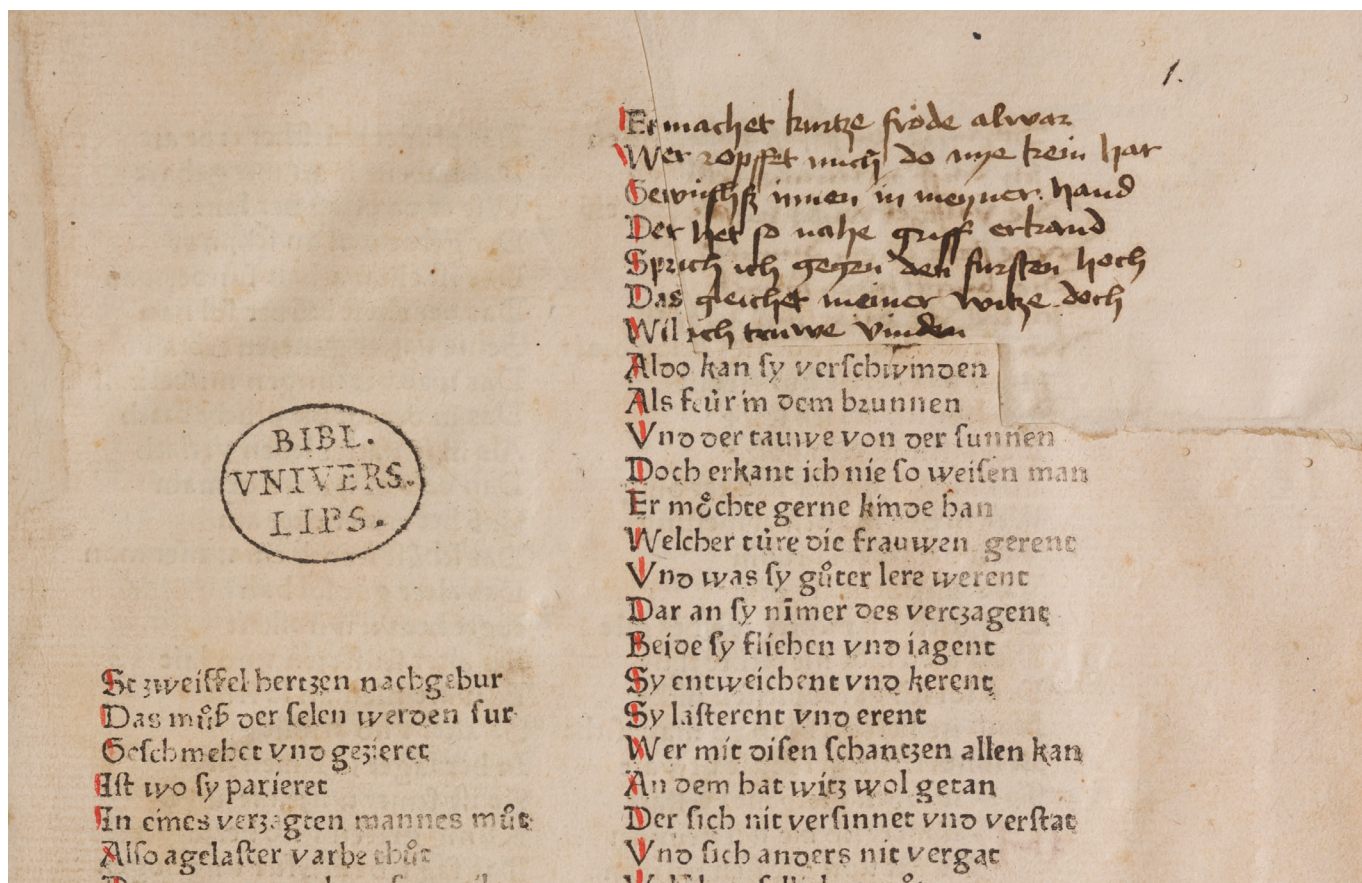 1.
BIBL.
VNIVERS.
LIPS.
St zweiffel hertzen nachgebur
Das můß der selen werden sur
Geschmehet vnd gezieret
Ist wo sy parieret
In eines verzagten mannes můt
Also agelaster varbe thůt
Er machet kurtze fröde alwar
Wer ropffet mich do nye kein har
Gewuchß innen in meyner hand
Der het so nahe griff erkand
Sprich ich gegen den fursten hoch
Das gleichet meiner witze doch
Wil ich truwe vinden
Aldo kan sy verschwinden
Als feůr in dem brunnen
Vnd der tauwe von der sunnen
Doch erkant ich nie so weisen man
Er moͤchte gerne kinde han
Welcher tûre die frauwen gerent
Vnd was sy gůter lere werent
Dar an sy nīmer des verczagent
Beide sy fliehen vnd iagent
Sy entweichent vnd kerent
Sy lasterent vnd erent
Wer mit disen schantzen allen kan
An dem hat witz wol getan
Der sich nit versinnet vnd verstat
Vnd sich anders nit vergat